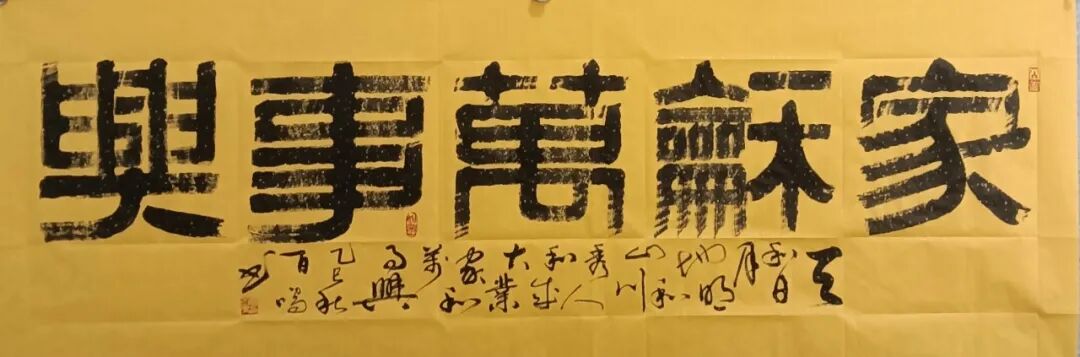 家龢萬事興
天
和日
月明
地和
山川
秀人
和成
大業
家和
萬
事興
乙巳秋
百
书